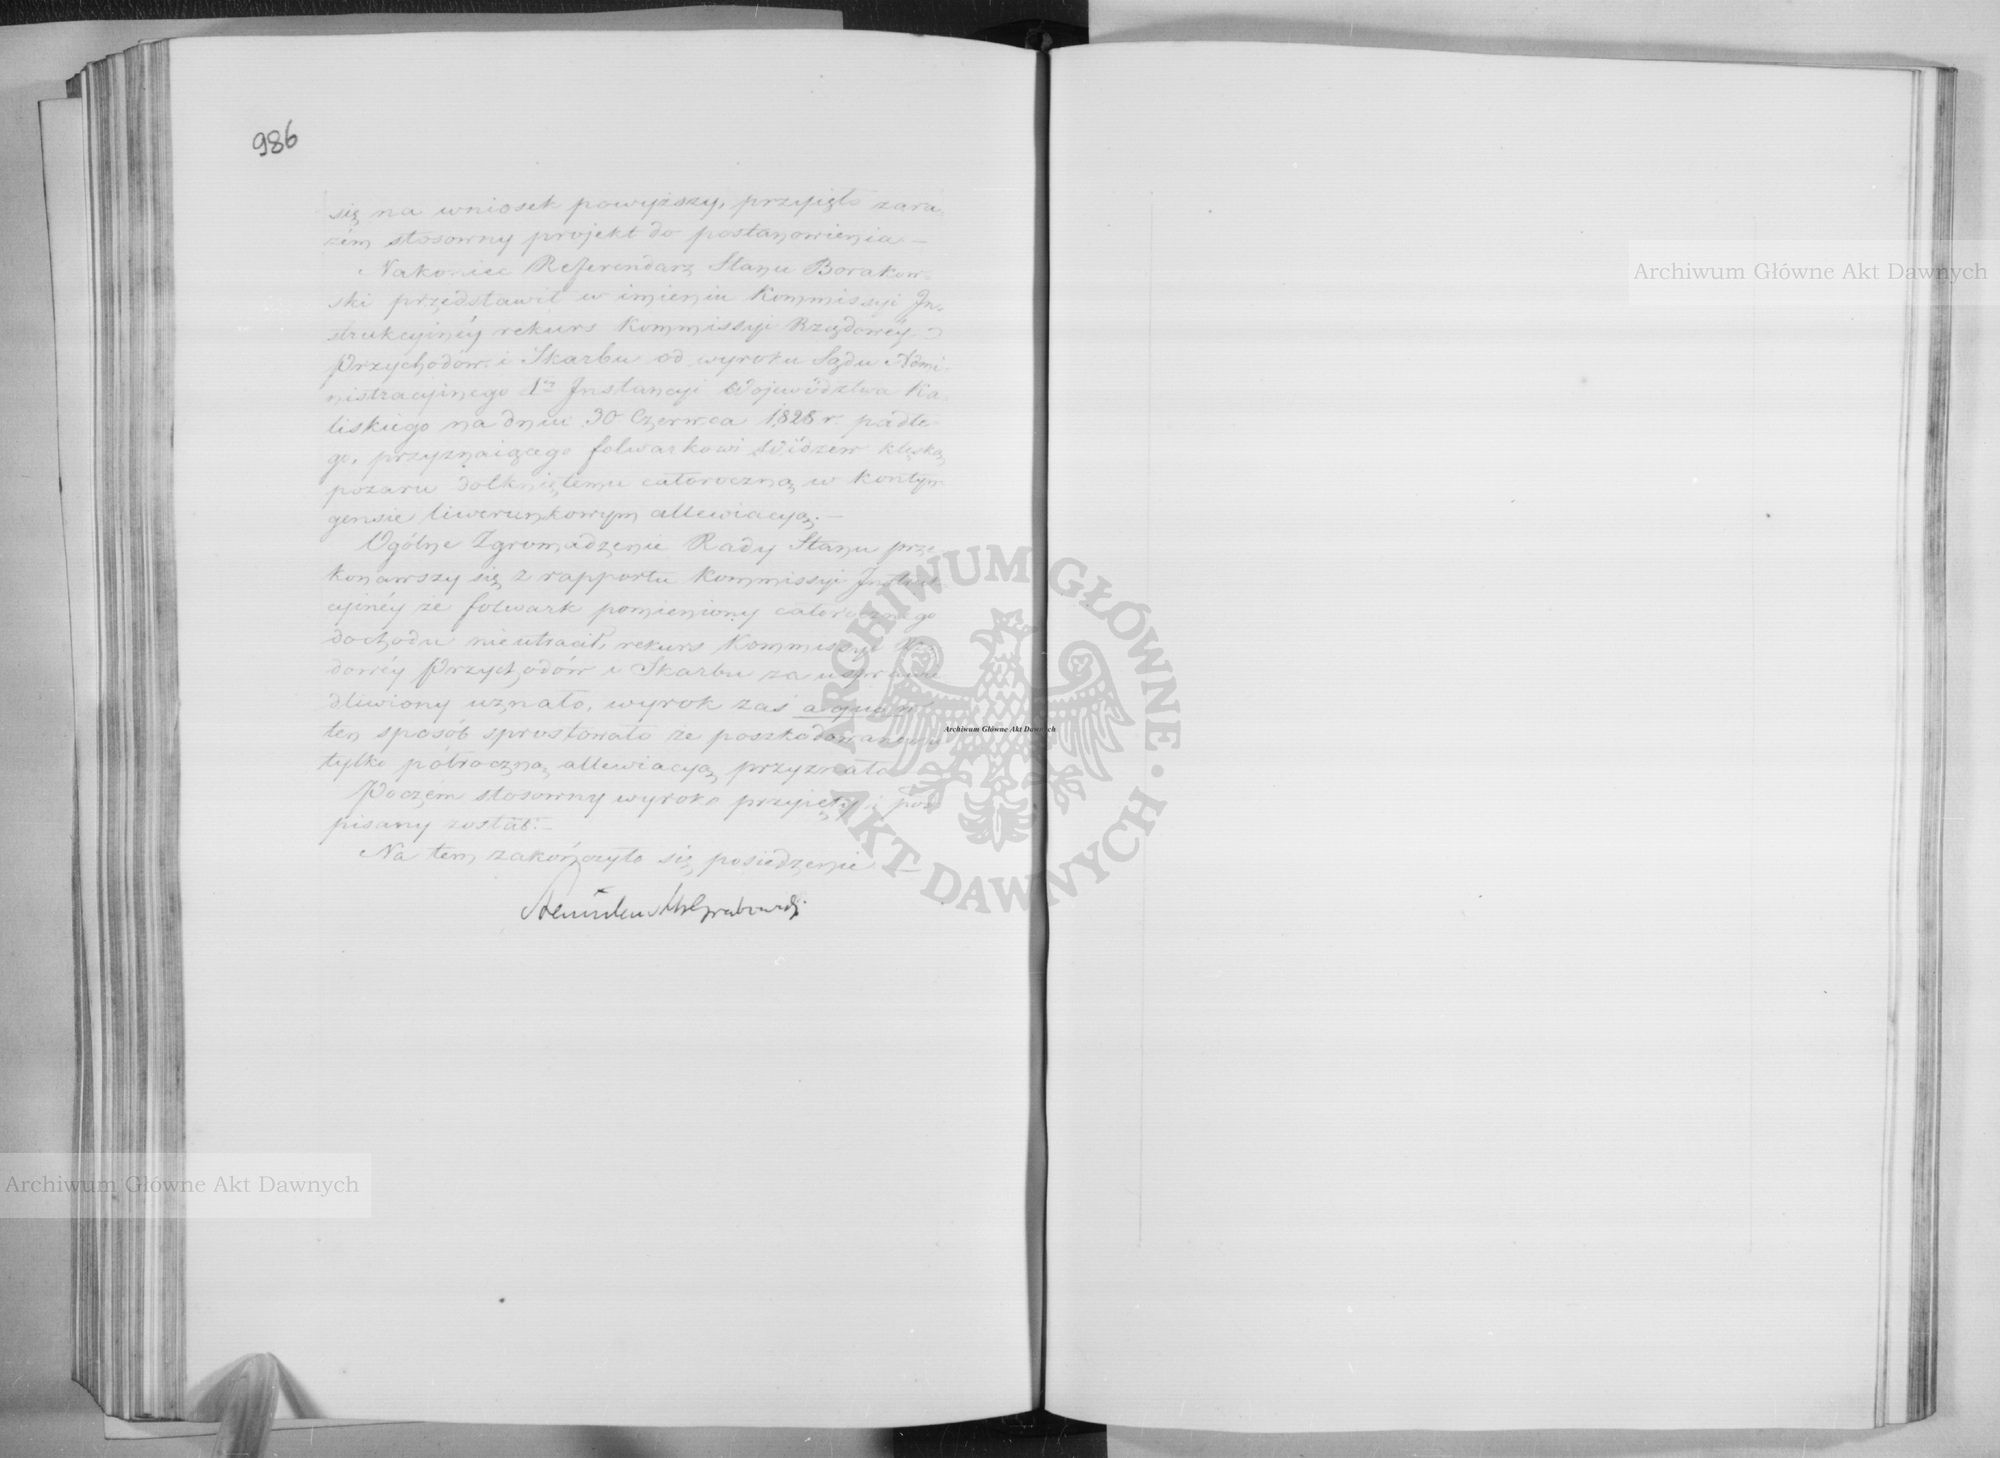 986
się na wniosek powyższy, przyięto zara-
zem stosowny projekt do postanowienia –
Nakoniec Referendarz Stanu Borakow-
ski przedstawił w imieniu Kommissyi In-
strukcyinéy rekurs Kommissyi Rządowéy
Przychodów i Skarbu od wyroku Sądu Admi-
nistracyinego 1éy Instancyi Województwa Ka-
liskiego na dniu 30 Czerwca 1828 r. padłe-
go, przyznaiącego folwarkowi Widzew klęską
pożaru dotkniętemu całoroczną w kontyn-
gensie liwerunkowym allewiacyą. –
Ogólne Zgromadzenie Rady Stanu prze-
konawszy się z rapportu Kommissyi Instruk-
cyinéy że folwark pomieniony całorocznego
dochodu nieutracił, rekurs Kommissyi Rzą-
dowéy Przychodów i Skarbu za usprawie-
dliwiony uznało, wyrok zaś a quo w
ten sposób sprostowało że poszkodowanemu
tylko półroczną allewiacyą przyznało
Poczém stosowny wyrok przyięty i pod-
pisany został. –
Na tem zakończyło się posiedzenie –
Grabowski
Archiwum Główne Akt Dawnych
Archiwum Główne Akt Dawnych
Archiwum Główne Akt Dawnych
ARCHIWUM GŁÓWNE • AKT DAWNYCH •